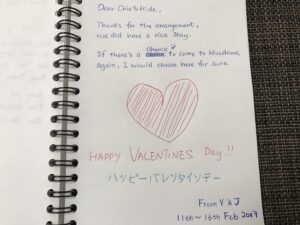 Dear Chie & Hide,
Thanks for the arrangement,
we did have a nice stay.
If there's a chance to come to Hiroshima
again, I would choose here for sure.
HAPPY VALENTINES Day!!
ハッピーバレンタインデー
From Y & J
11th ~ 16th Feb 2017